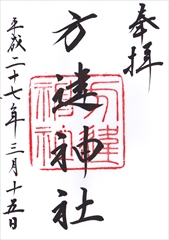 奉拝
方違神社
平成二十七年三月十五日